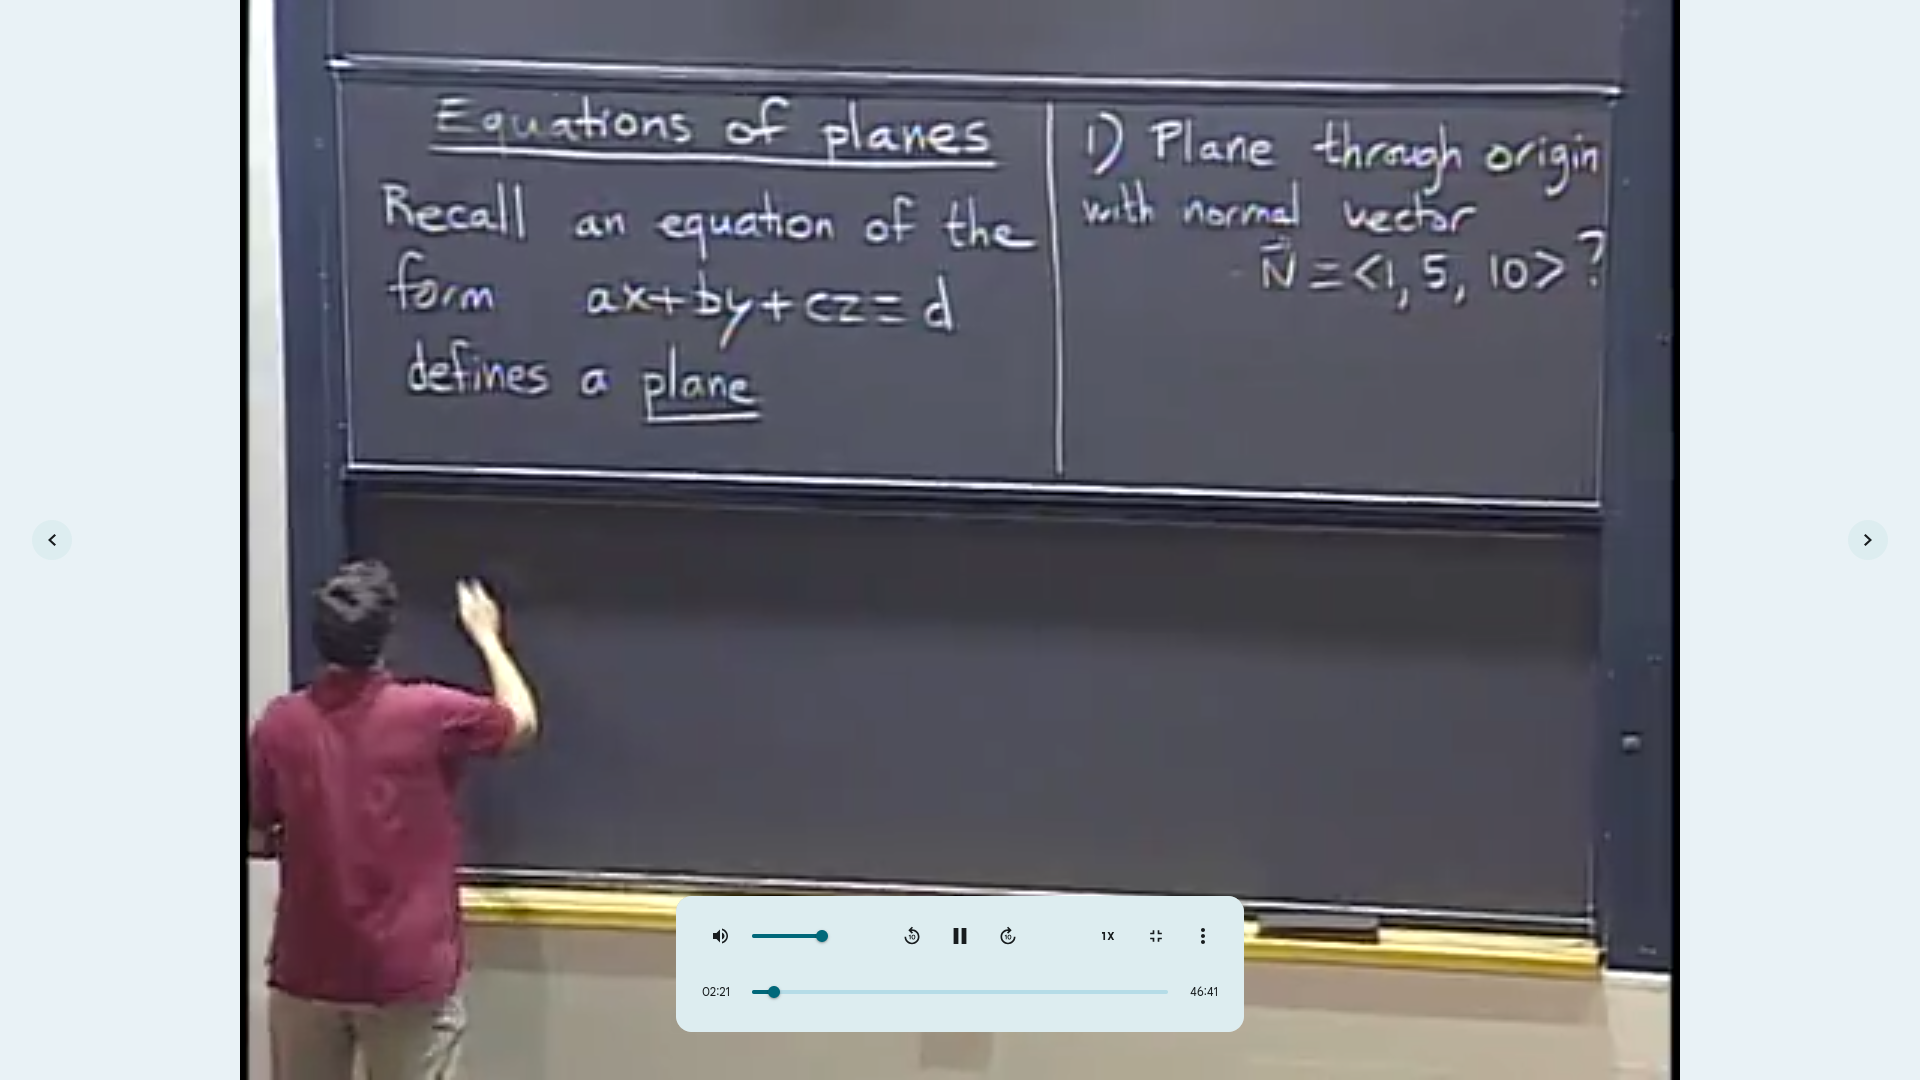 Equations of planes
Recall an equation of the
form ax+by+cz=d
defines a plane
1) Plane through origin
with normal vector
N⃗ = <1, 5, 10> ?
10
10
1X
02:21
46:41